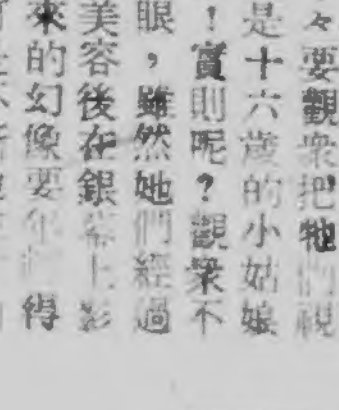 々要觀衆把牠們視
是十六歲的小姑娘
！實則呢？觀衆不
眼，雖然她們經過
美容後在銀幕上影
來的幻像要年 得